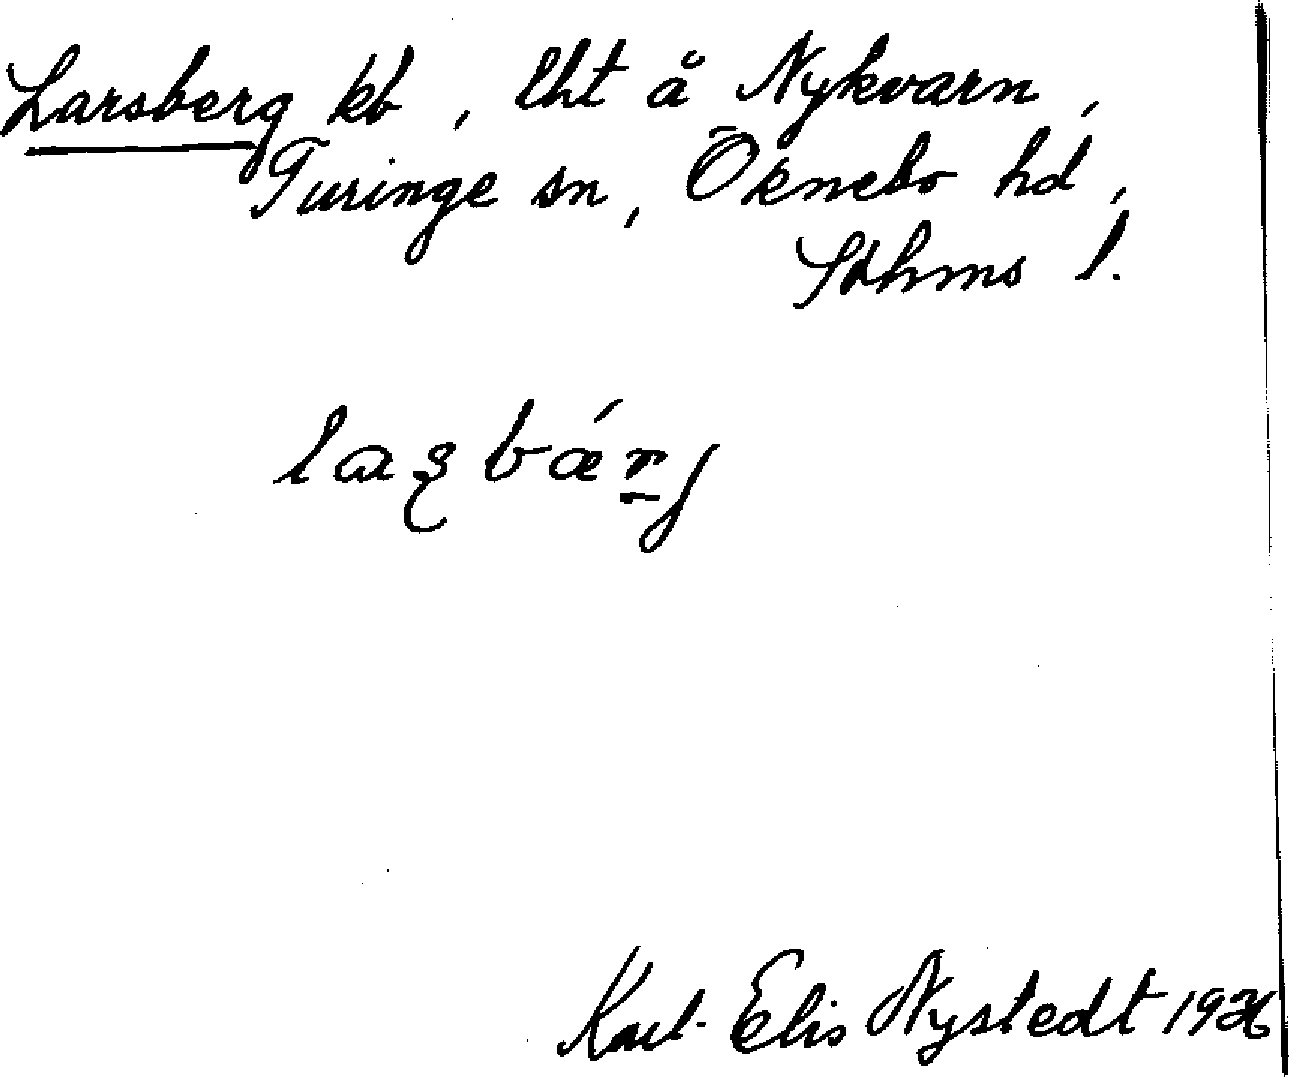 Larsberg kb, lht å Nykvarn,
Turinge sn, Öknebo hd,
Sthms l.
laʂbǽrj
Karl-Elis Nystedt